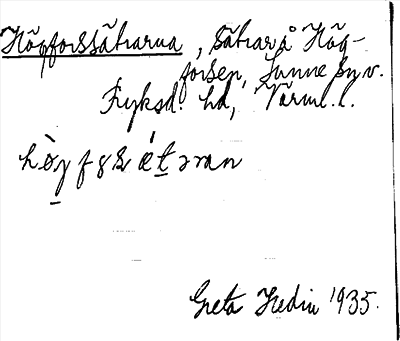 Högforssätrarna, sätrar å Hög-
forsen, Sunne sn v.
Fryksd. hd, Värml. l.
Greta Hedin 1935.